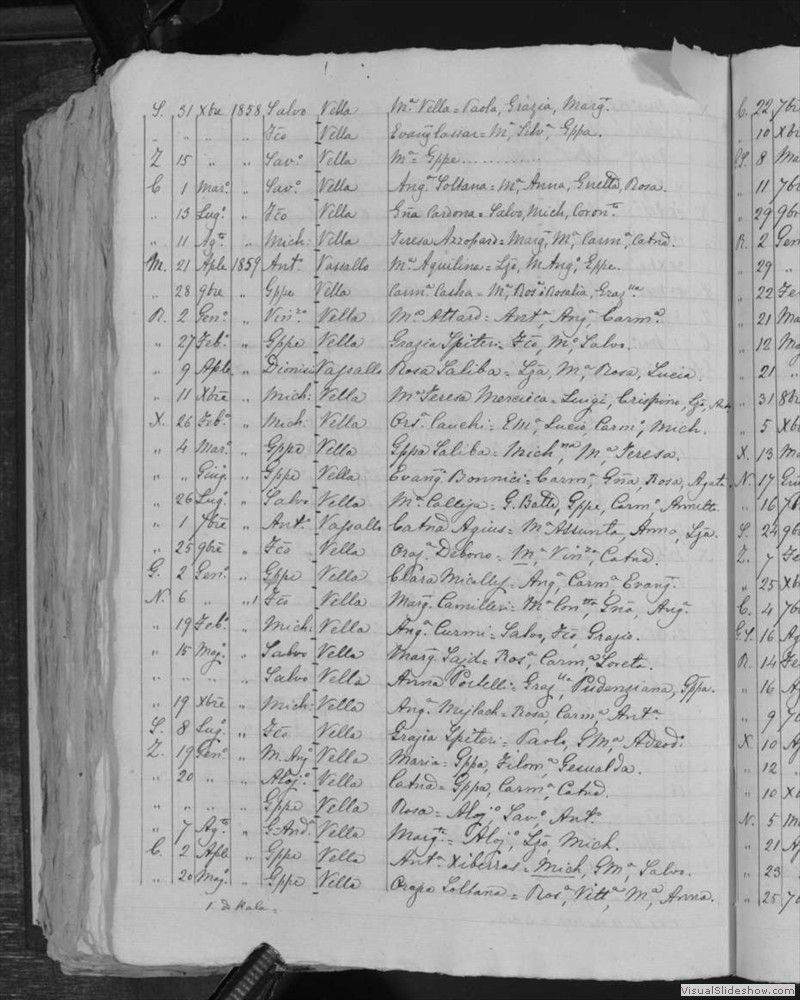 S. 31 Xbre 1858 Salvo Vella Mª Vella = Paola, Grazia, Marg.
" " " " Fco Vella Evang Cassar = Mª, Silvª, Gppa.
Z 15 " " Savº Vella Mª = Gppe
C 1 Marº " Savº Vella Angª Soltana = Mª Anna, Rosa.
" 13 Lugº " Fco Vella Gña Cardona = Salvo, Mich,
" 11 Agto " Mich: Vella Teresa Azzopard = Marg, Mª, Carmª, Catnd.
M. 21 Aple 1859 Antº Vassallo Mª Aquilina = Lja, M. Angº, Gppe.
" 28 9bre " Gppe Vella Carmª Casha = Mª, Rosª Rosalia,
R. 2 Genº " Vinzº Vella Mª Attard = Antª, Angª, Carmª.
" 27 Febº " Gppe Vella Grazia Spiteri = Fco, Mª, Salvo.
" 9 Aple " Dionisio Vassallo Rosa Saliba = Lja, Mª, Rosa, Lucia.
" 11 Xbre " Mich: Vella Mª Teresa Mercieca = Luigi, Crispino, Ljo,
X. 26 Febº " Mich: Vella Orsª Cauchi = Emª, Lucio, Carmº, Mich.
" 4 Marº " Gppe Vella Gppa Saliba = Michna, Mª Teresa.
" " Giugº " Gppe Vella Evang. Bonnici = Carmª, Gña, Rosa, Agat.
" 26 Lugº " Salvo Vella Mª Calleja = G. Batta, Gppe, Carmº, Annetta
" 1 7bre " Antº Vassallo Catnd Agius = Mª Assunta, Anna, Lja.
" 25 9bre " Fco Vella Grazª Debono = Mª, Vinzª, Catnd.
G. 2 Genº " Gppe Vella Clara Micallef = Angª, Carmª Evang.
N. 6 " "1 Fco Vella Marg. Camilleri = Mª Gña, Angª.
" 19 Febº " Mich: Vella Angª Curmi = Salvo, Fco, Grazio.
" 15 Magº " Salvo Vella Marg. Sajd = Rosª, Carmª Loreta.
" " " " Salvo Vella Anna Portelli = Grazlla, Pudenziana, Gppa.
" 19 Xbre " Mich: Vella Angª Mejlach = Rosa Carmª Antª
S. 8 Lugº " Fco Vella Grazia Spiteri = Paolo, G Mª, Adeodº
Z. 19 Genº " M. Angº Vella Maria = Gppa, Filomª, Gesualda.
" 20 " " Alojº Vella Catnd = Gppa, Carmª, Catnd.
" " " " Gppe Vella Rosa = Alojº, Savº, Antº
" 7 Agto " G. Andª Vella = Alojº, Ljo, Mich.
C. 2 Aple " Gppe Vella Antª Xiberras = Mich, G Mª, Salvo.
" 20 Magº " Gppe Vella Grazia Soltana = Rosª, Vittª, Mª, Anna.
C. 22 7bre
" 10 Xbre
8 Ma
" 11 7b
" 29 9bre
R. 2 Gen
" 29 "
" 22 Fe
" 21 Ma
" 12 Ma
" 21 "
" 31 8bre
" 5 Xbre
X. 13 Ma
N. 17 Giu
" 16 7b
S. 24 9br
Z. 7 Fe
" 25 Xb
C. 4 7b
G.S. 16 Ag
R. 14 Fe
" 16 Ag
" 9 7b
X. 10 Ag
" 12 "
" 10 Xb
N. 5 Ma
" 21 A
" 23
" 25 7b
VisualSlideshow.com